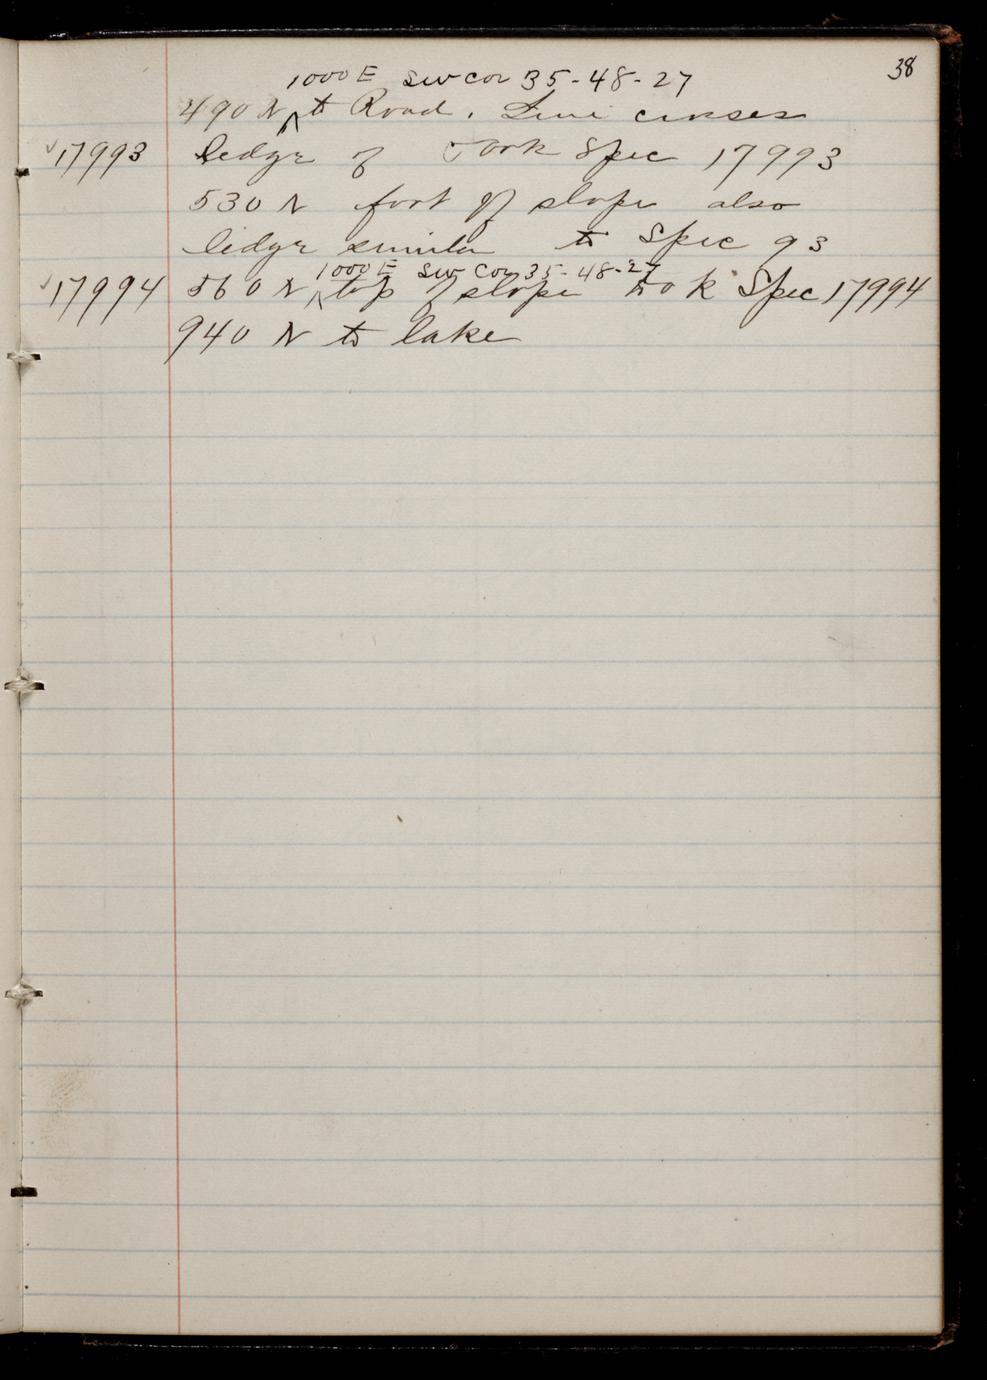 38
1000 E SW cor 35-48-27
490 N ^ to Road. Line crosses
✓17993 ledge of Took Spec 17993
530 N foot of slope also
ledge similar to Spec 93
1000 E SW Cor 35-48-27
✓17994 560 N ^ top of slope Took Spec 17994
940 N to lake